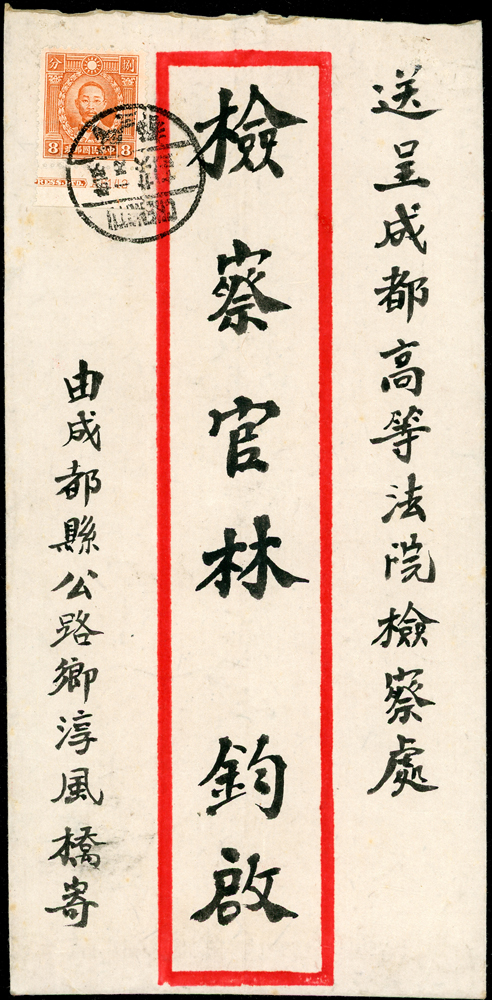 送呈成都高等法院檢察處
檢察官林 鈞啟
由成都縣公路鄉淳風橋寄
分 捌
8 8